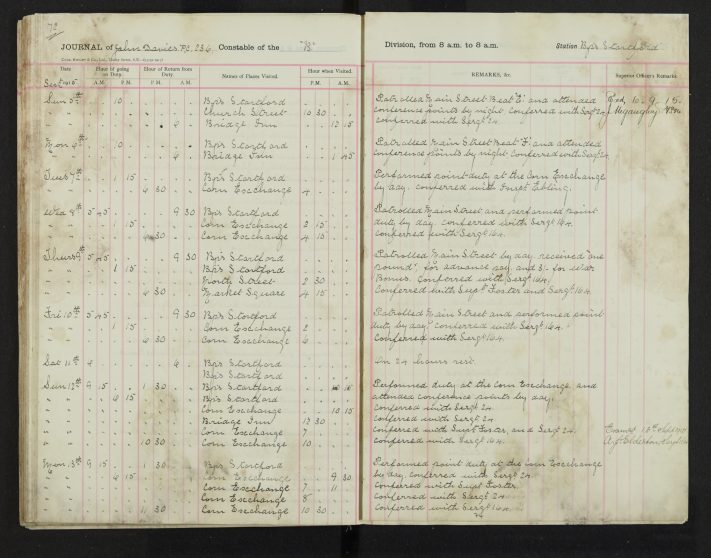 72
JOURNAL of John Davies P.C. 236 Constable of the "B" Division, from 8 a.m. to 8 a.m. Station Bp's Stortford
Date Hour of going on Duty. Hour of Return from Duty. Names of Places Visited. Hour when Visited. REMARKS, &c. Superior Officer's Remarks.
A.M. P.M. A.M. P.M. P.M. A.M.
Sept 1915
Sun 5th 10 Bp's Stortford Patrolled Main Street Beat "F" and attended 10.9.15.
" " Church Street 10 30 conference points by night conferred with Sergt 24
" " 6 Bridge Inn 12 15 conferred with Sergt 24.
Mon 6th 10 Bp's Stortford Patrolled Main Street Beat "F" and attended
" " 6 Bridge Inn 1 45 conference points by night Conferred with Sergt 24
Tues 7th 1 15 Bp's Stortford Performed point duty at the Corn Exchange
" " 6 30 Corn Exchange 4 by day. conferred with
Wed 8th 5 45 9 30 Bp's Stortford Patrolled Main Street and performed point
" " 15 Corn Exchange 2 15 duty by day. conferred with Sergt 164.
" " 30 Corn Exchange 4 15 conferred with Sergt 164.
Thurs 9th 5 45 9 30 Bp's Stortford Patrolled Main Street by day received "one
" " 1 15 Bp's Stortford pound", for advance pay. and for War
" " North Street 2 30 Bonus. Conferred with Sergt 164.
" " 6 30 Market Square 4 15 Conferred with Supt Foster and Sergt 164
Fri 10th 5 45 9 30 Bp's Stortford Patrolled Main Street and performed point
" " 1 15 Corn Exchange 2 duty by day. conferred with Sergt 164.
" " 6 30 Corn Exchange 6 Conferred with Sergt 164.
Sat 11th 6 6 Bp's Stortford On 24 hours rest.
" " Bp's Stortford
Sun 12th 9 15 1 30 Bp's Stortford Performed duty at the Corn Exchange and
" " 6 15 Bp's Stortford attended conference points by day.
" " Corn Exchange 10 15 conferred with Sergt 24
" " Bridge Inn 12 30 Conferred with Sergt 24.
" " Corn Exchange 7 conferred with Supt Foster and Sergt 24.
" " 10 30 Corn Exchange 10 conferred with Sergt 164.
Mon 13th 9 15 1 30 Bp's Stortford Performed point duty at the Corn Exchange
" " 6 15 Corn Exchange 9 30 by day, conferred with Sergt 24.
" " Corn Exchange 7 11 Conferred with Supt Foster
" " Corn Exchange 8 Conferred with Sergt 24
" " 1 30 Corn Exchange 10 30 conferred with Sergt 164.